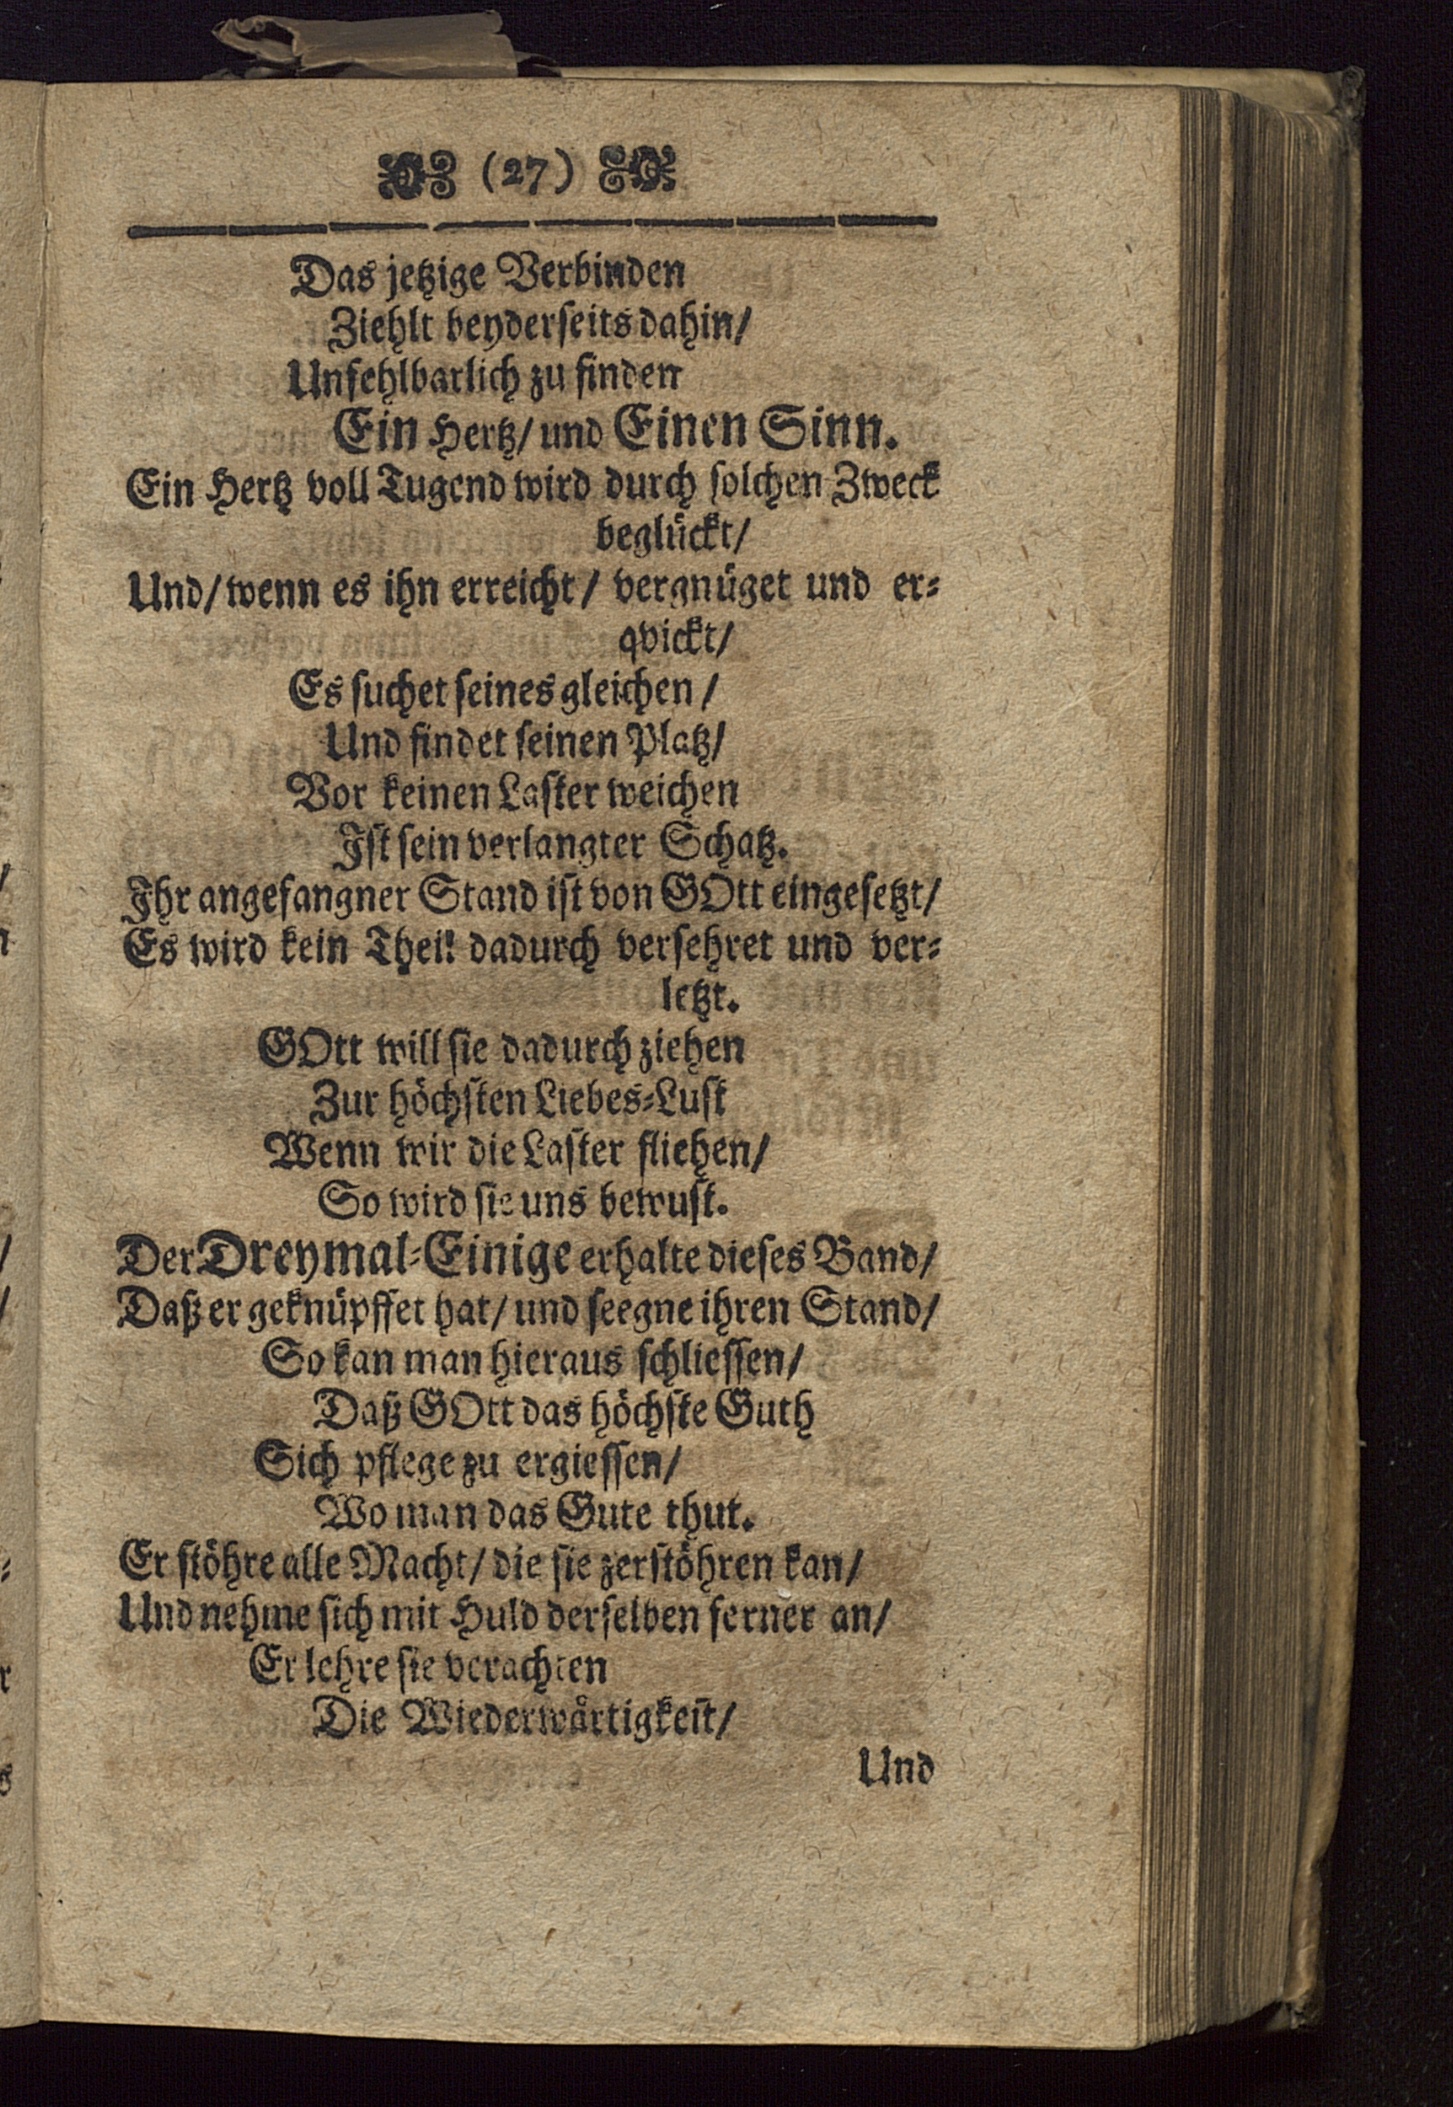 (27)
Das jetzige Verbinden
Ziehlt beyderseits dahin/
Unfehlbarlich zu finden
Ein Hertz/ und Einen Sinn.
Ein Hertz voll Tugend wird durch solchen Zweck
beglückt/
Und/ wenn es ihn erreicht/ vergnüget und er-
qvickt/
Es suchet seines gleichen/
Und findet seinen Platz/
Vor keinen Laster weichen
Ist sein verlangter Schatz.
Ihr angefangner Stand ist von GOtt eingesetzt/
Es wird kein Theil dadurch versehret und ver-
letzt.
GOtt will sie dadurch ziehen
Zur höchsten Liebes-Lust
Wenn wir die Laster fliehen/
So wird sie uns bewust.
Der Dreymal-Einige erhalte dieses Band/
Daß er geknüpffet hat/ und seegne ihren Stand/
So kan man hieraus schliessen/
Daß GOtt das höchste Guth
Sich pflege zu ergiessen/
Wo man das Gute thut.
Er stöhre alle Macht/ die sie zerstöhren kan/
Und nehme sich mit Huld derselben ferner an/
Er lehre sie verachten
Die Wiederwärtigkeit/
Und